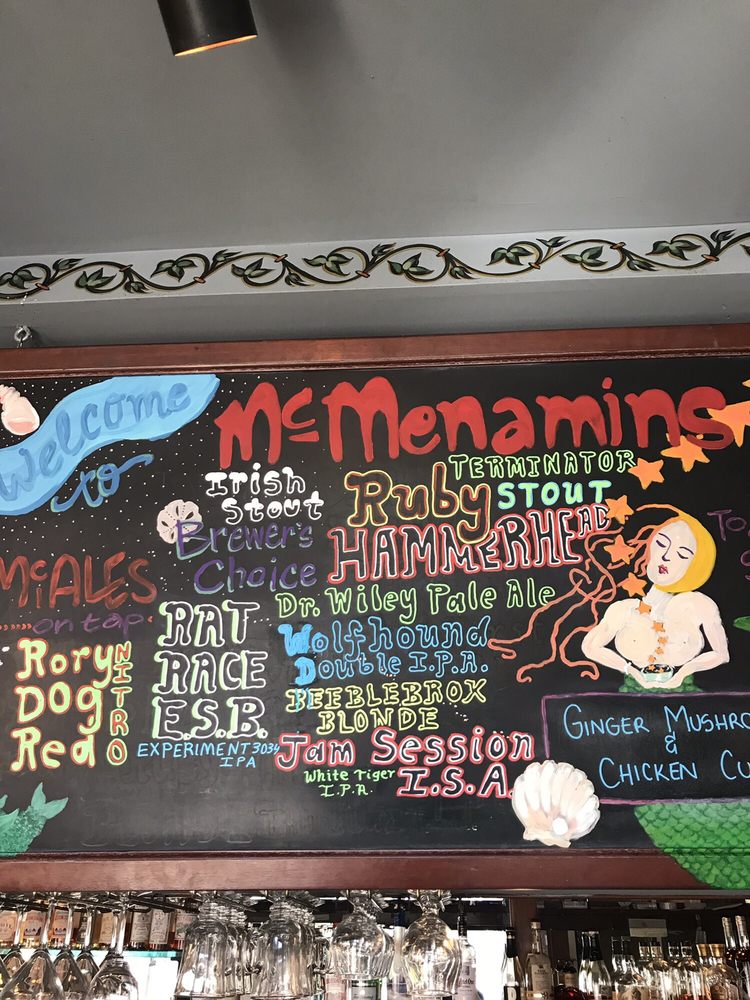 Welcome
to
McMenamins
TERMINATOR
STOUT
Irish
Stout
Ruby
Brewer's
Choice
HAMMERHEAD
McALES
on tap
Dr. Wiley Pale Ale
RAT
RACE
E.S.B.
Wolfhound
Double I.P.A.
Rory
DOG
Red
NITRO
BEEBLEBROX
BLONDE
EXPERIMENT 3034
IPA
Jam Session
I.S.A.
White Tiger
I.P.A.
GINGER MUSHRO
&
CHICKEN CU